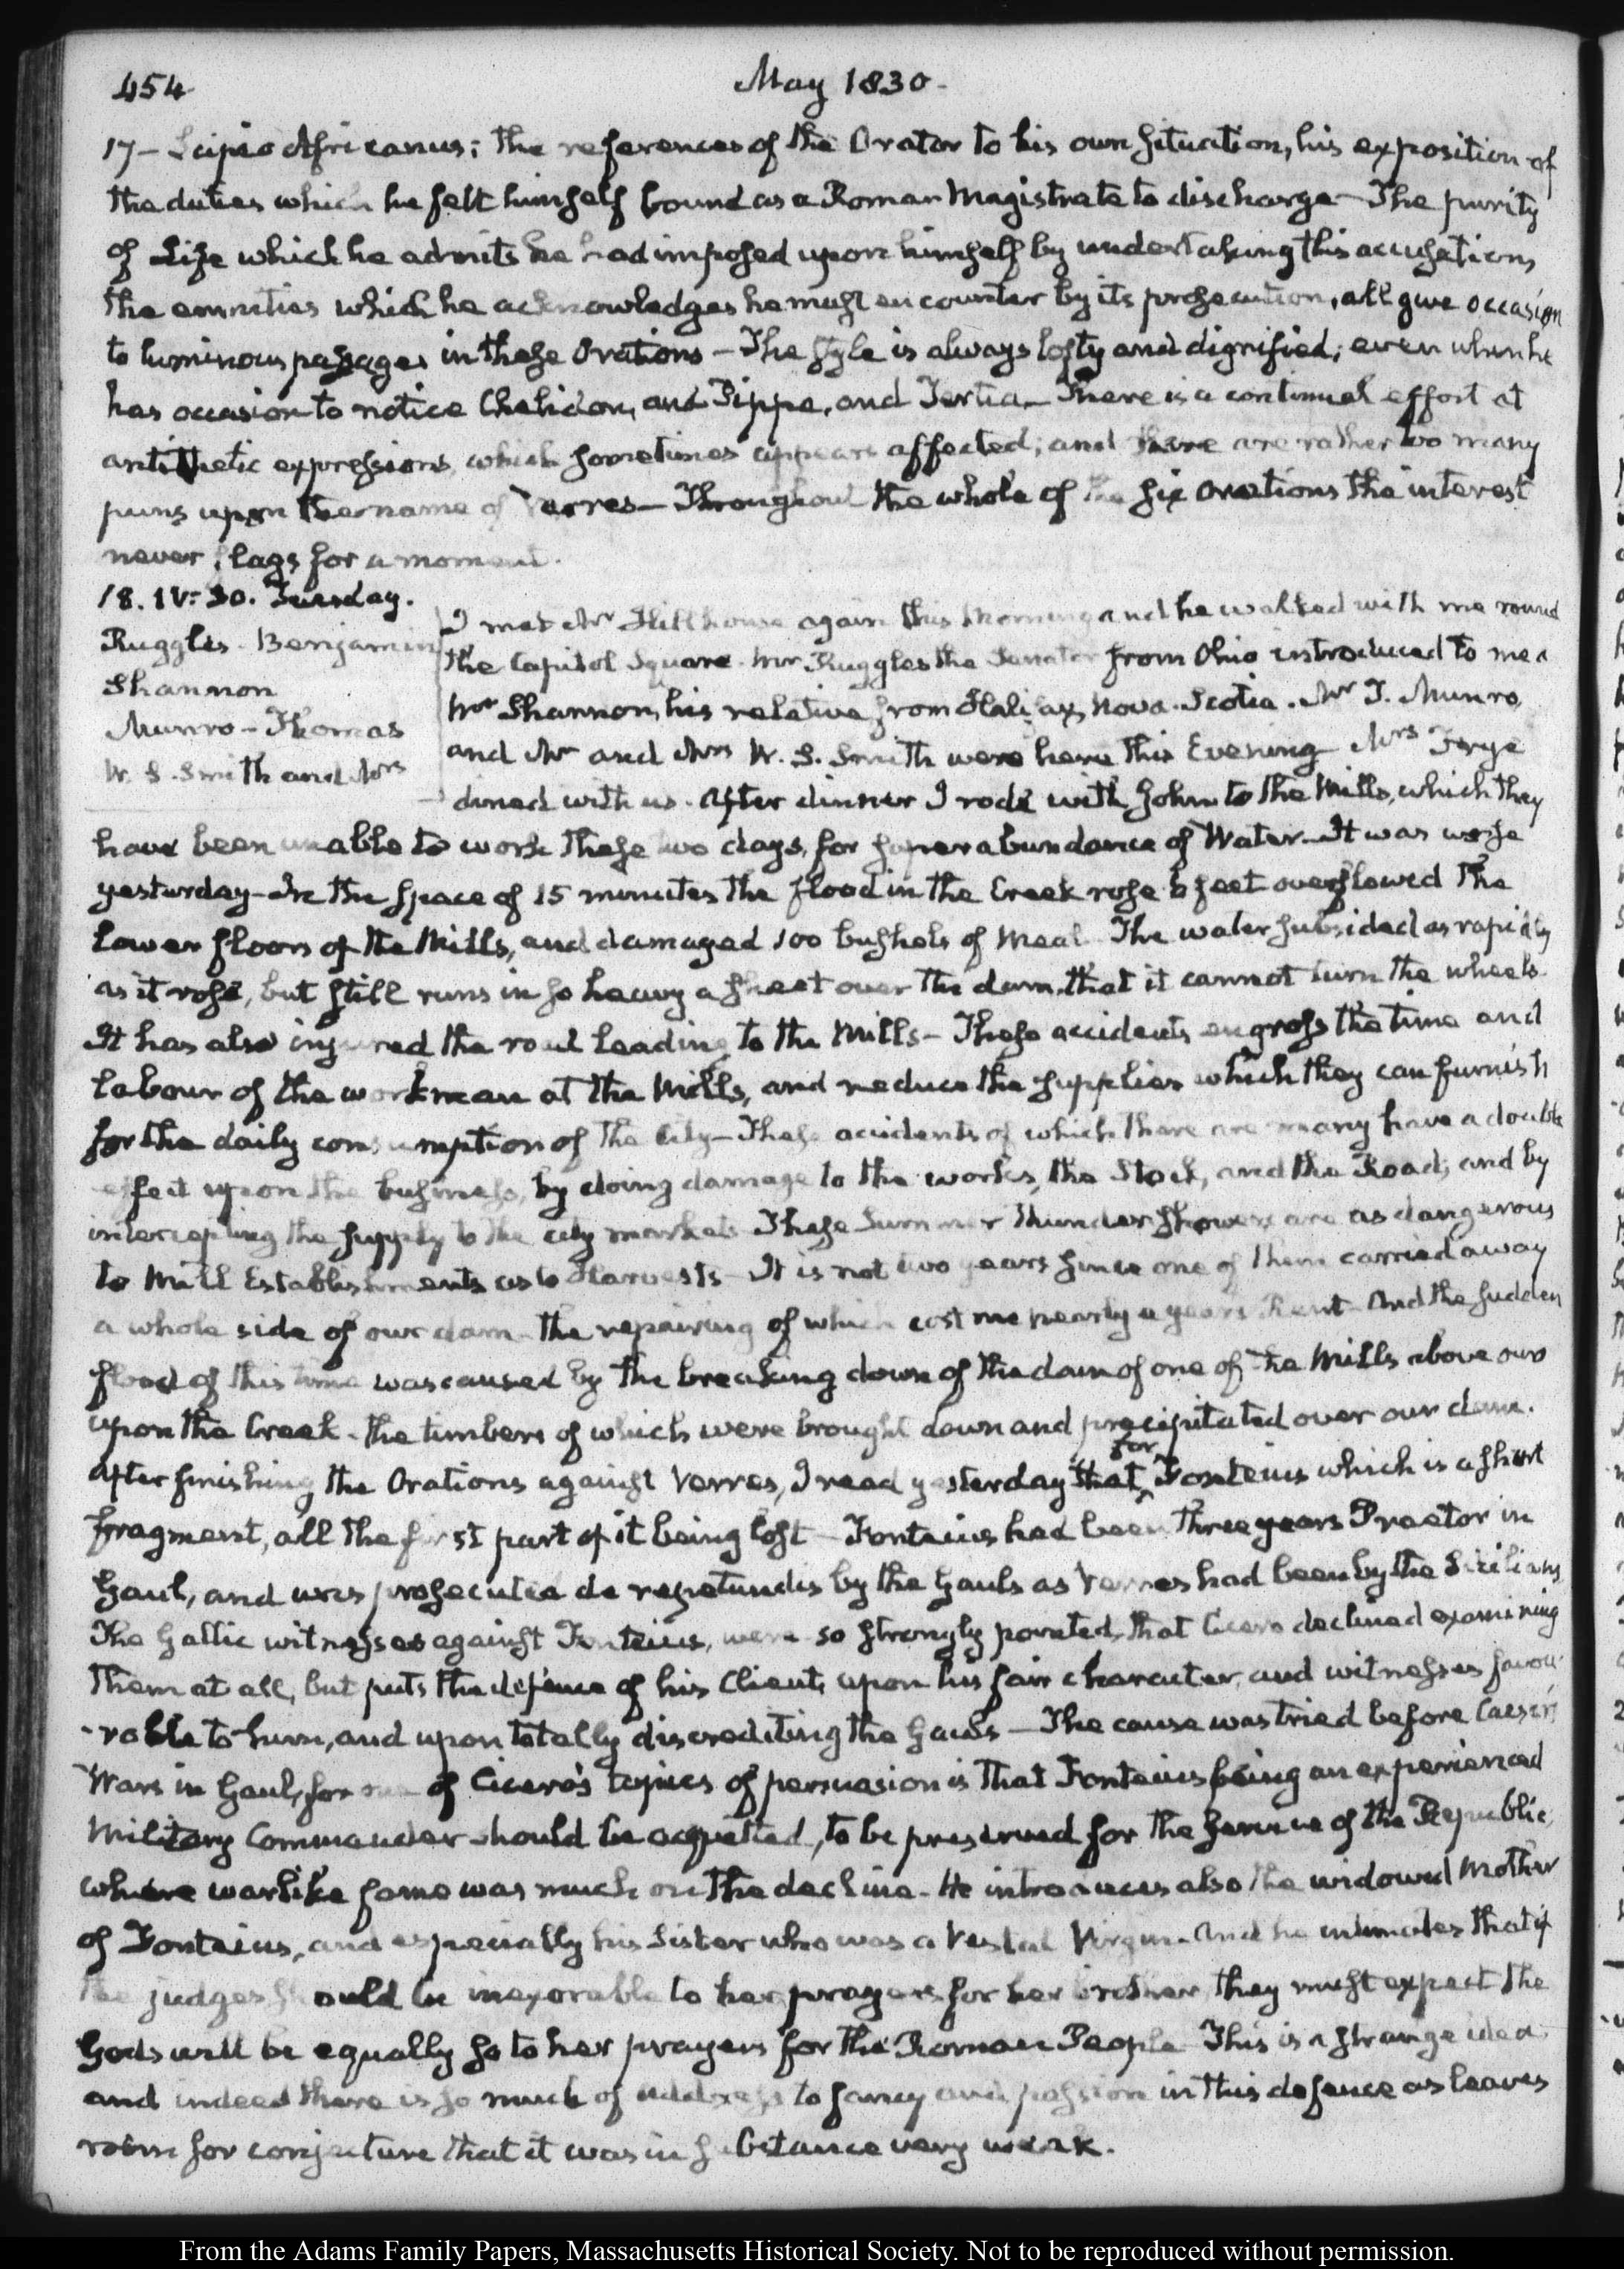 454
May 1830.
17 — Scipio Africanus; the references of the Orator to his own situation, his exposition of
the duties which he felt himself bound as a Roman Magistrate to discharge — The purity
of Life which he admits he had imposed upon himself by undertaking this accusation,
the enmities which he acknowledges he must encounter by its prosecution, all give occasion
to luminous passages in these Orations — The style is always lofty and dignified; even when he
has occasion to notice Chelidon, and Pippa, and Tertia — There is a continual effort at
antithetic expressions which sometimes appears affected; and there are rather too many
puns upon the name of Verres — Throughout the whole of the six Orations the interest
never flags for a moment.
18. IV: 30. Tuesday.
Ruggles. Benjamin
Shannon
Munro — Thomas
W. S. Smith and Mrs
I met Mr Hillhouse again this Morning and he walked with me round
the Capitol Square. Mr Ruggles the Senator from Ohio introduced to me a
Mr Shannon, his relative from Halifax, Nova-Scotia. Mr T. Munro,
and Mr and Mrs W. S. Smith were here this Evening Mrs Frye
dined with us. After dinner I rode with John to the Mills, which they
have been unable to work these two days, for superabundance of Water. It was worse
yesterday — In the space of 15 minutes the flood in the Creek rose 6 feet overflowed the
lower floors of the Mills, and damaged 100 bushels of Meal. The water subsided as rapidly
as it rose, but still runs in so heavy a sheet over the dam, that it cannot turn the wheels.
It has also injured the road leading to the Mills — These accidents engross the time and
labour of the workmen at the Mills, and reduce the supplies which they can furnish
for the daily consumption of the City — These accidents of which there are many have a double
effect upon the business, by doing damage to the works, the Stock, and the Road; and by
intercepting the supply to the city markets These Summer Thunder showers are as dangerous
to Mill Establishments as to Harvests — It is not two years since one of them carried away
a whole side of our dam — the repairing of which cost me nearly a years Rent — And the sudden
flood of this time was caused by the breaking down of the dam of one of the Mills above ours
upon the Creek — the timbers of which were brought down and precipitated over our dam.
After finishing the Orations against Verres, I read yesterday that for Fonteius which is a short
fragment, all the first part of it being lost — Fonteius had been three years Praetor in
Gaul, and was prosecuted de repetundis by the Gauls as Verres had been by the Sicilians
The Gallic witnesses against Fonteius, were so strongly pointed, that Cicero declined examining
them at all, but puts the defence of his Client, upon his fair character, and witnesses favou-
-rable to him, and upon totally discrediting the Gauls — The cause was tried before Caesar's
Wars in Gaul, for one of Cicero's topics of persuasion is that Fonteius being an experienced
Military Commander should be acquitted, to be preserved for the service of the Republic,
where warlike fame was much on the decline — He introduces also the widowed Mother
of Fonteius, and especially his Sister who was a Vestal Virgin — And he intimates that if
the judges should be inexorable to her prayers for her brother, they must expect the
Gods will be equally so to her prayers for the Roman People This is a strange idea
and indeed there is so much of address to fancy and passion in this defence as leaves
room for conjecture that it was in substance very weak.
From the Adams Family Papers, Massachusetts Historical Society. Not to be reproduced without permission.